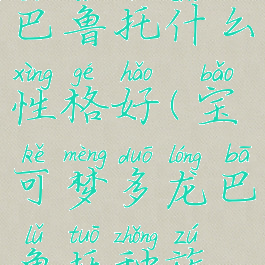 巴鲁托什么
xìng gé hǎo bǎo
性格好(宝
kě mèng duō lóng bā
可梦多龙巴
lǔ tuō zhǒng zú
鲁托种族